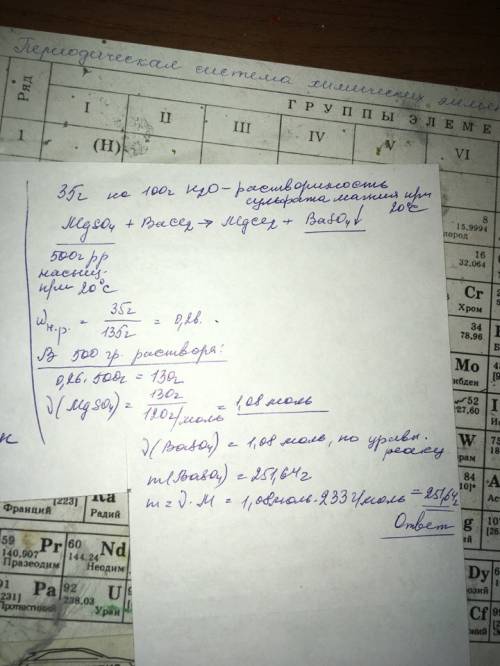 Периодическая система химических
Ряд
ГРУППЫ ЭЛЕМЕ
I II III IV V VI
1 (H)
35г на 100г H2O – растворимость
сульфата магния при
20°C
MgSO4 + BaCl2 → MgCl2 + BaSO4↓
500г рр
насыщ.
при 20°C
ωн.р. = 35г / 135г = 0,26.
В 500 гр. раствора:
0,26 · 500г = 130г
ν(MgSO4) = 130г / 120г/моль = 1,08 моль
ν(BaSO4) = 1,08 моль, по уравн.
реакц
m(BaSO4) = 251,64г
m = ν · M = 1,08моль · 233г/моль = 251,64г
Ответ
8
15,9994
ород
16
32.064
Cr 34
Хром 78,96
Mo
ибден
52
127,60
W
84
Po
[223] Ra
Франций Радий
59 Pr 60 Nd
140.907 144.24
Празеодим Неодим
91 Pa 92 U
[231] 238.03
Протактиний Уран
Dy
Cf